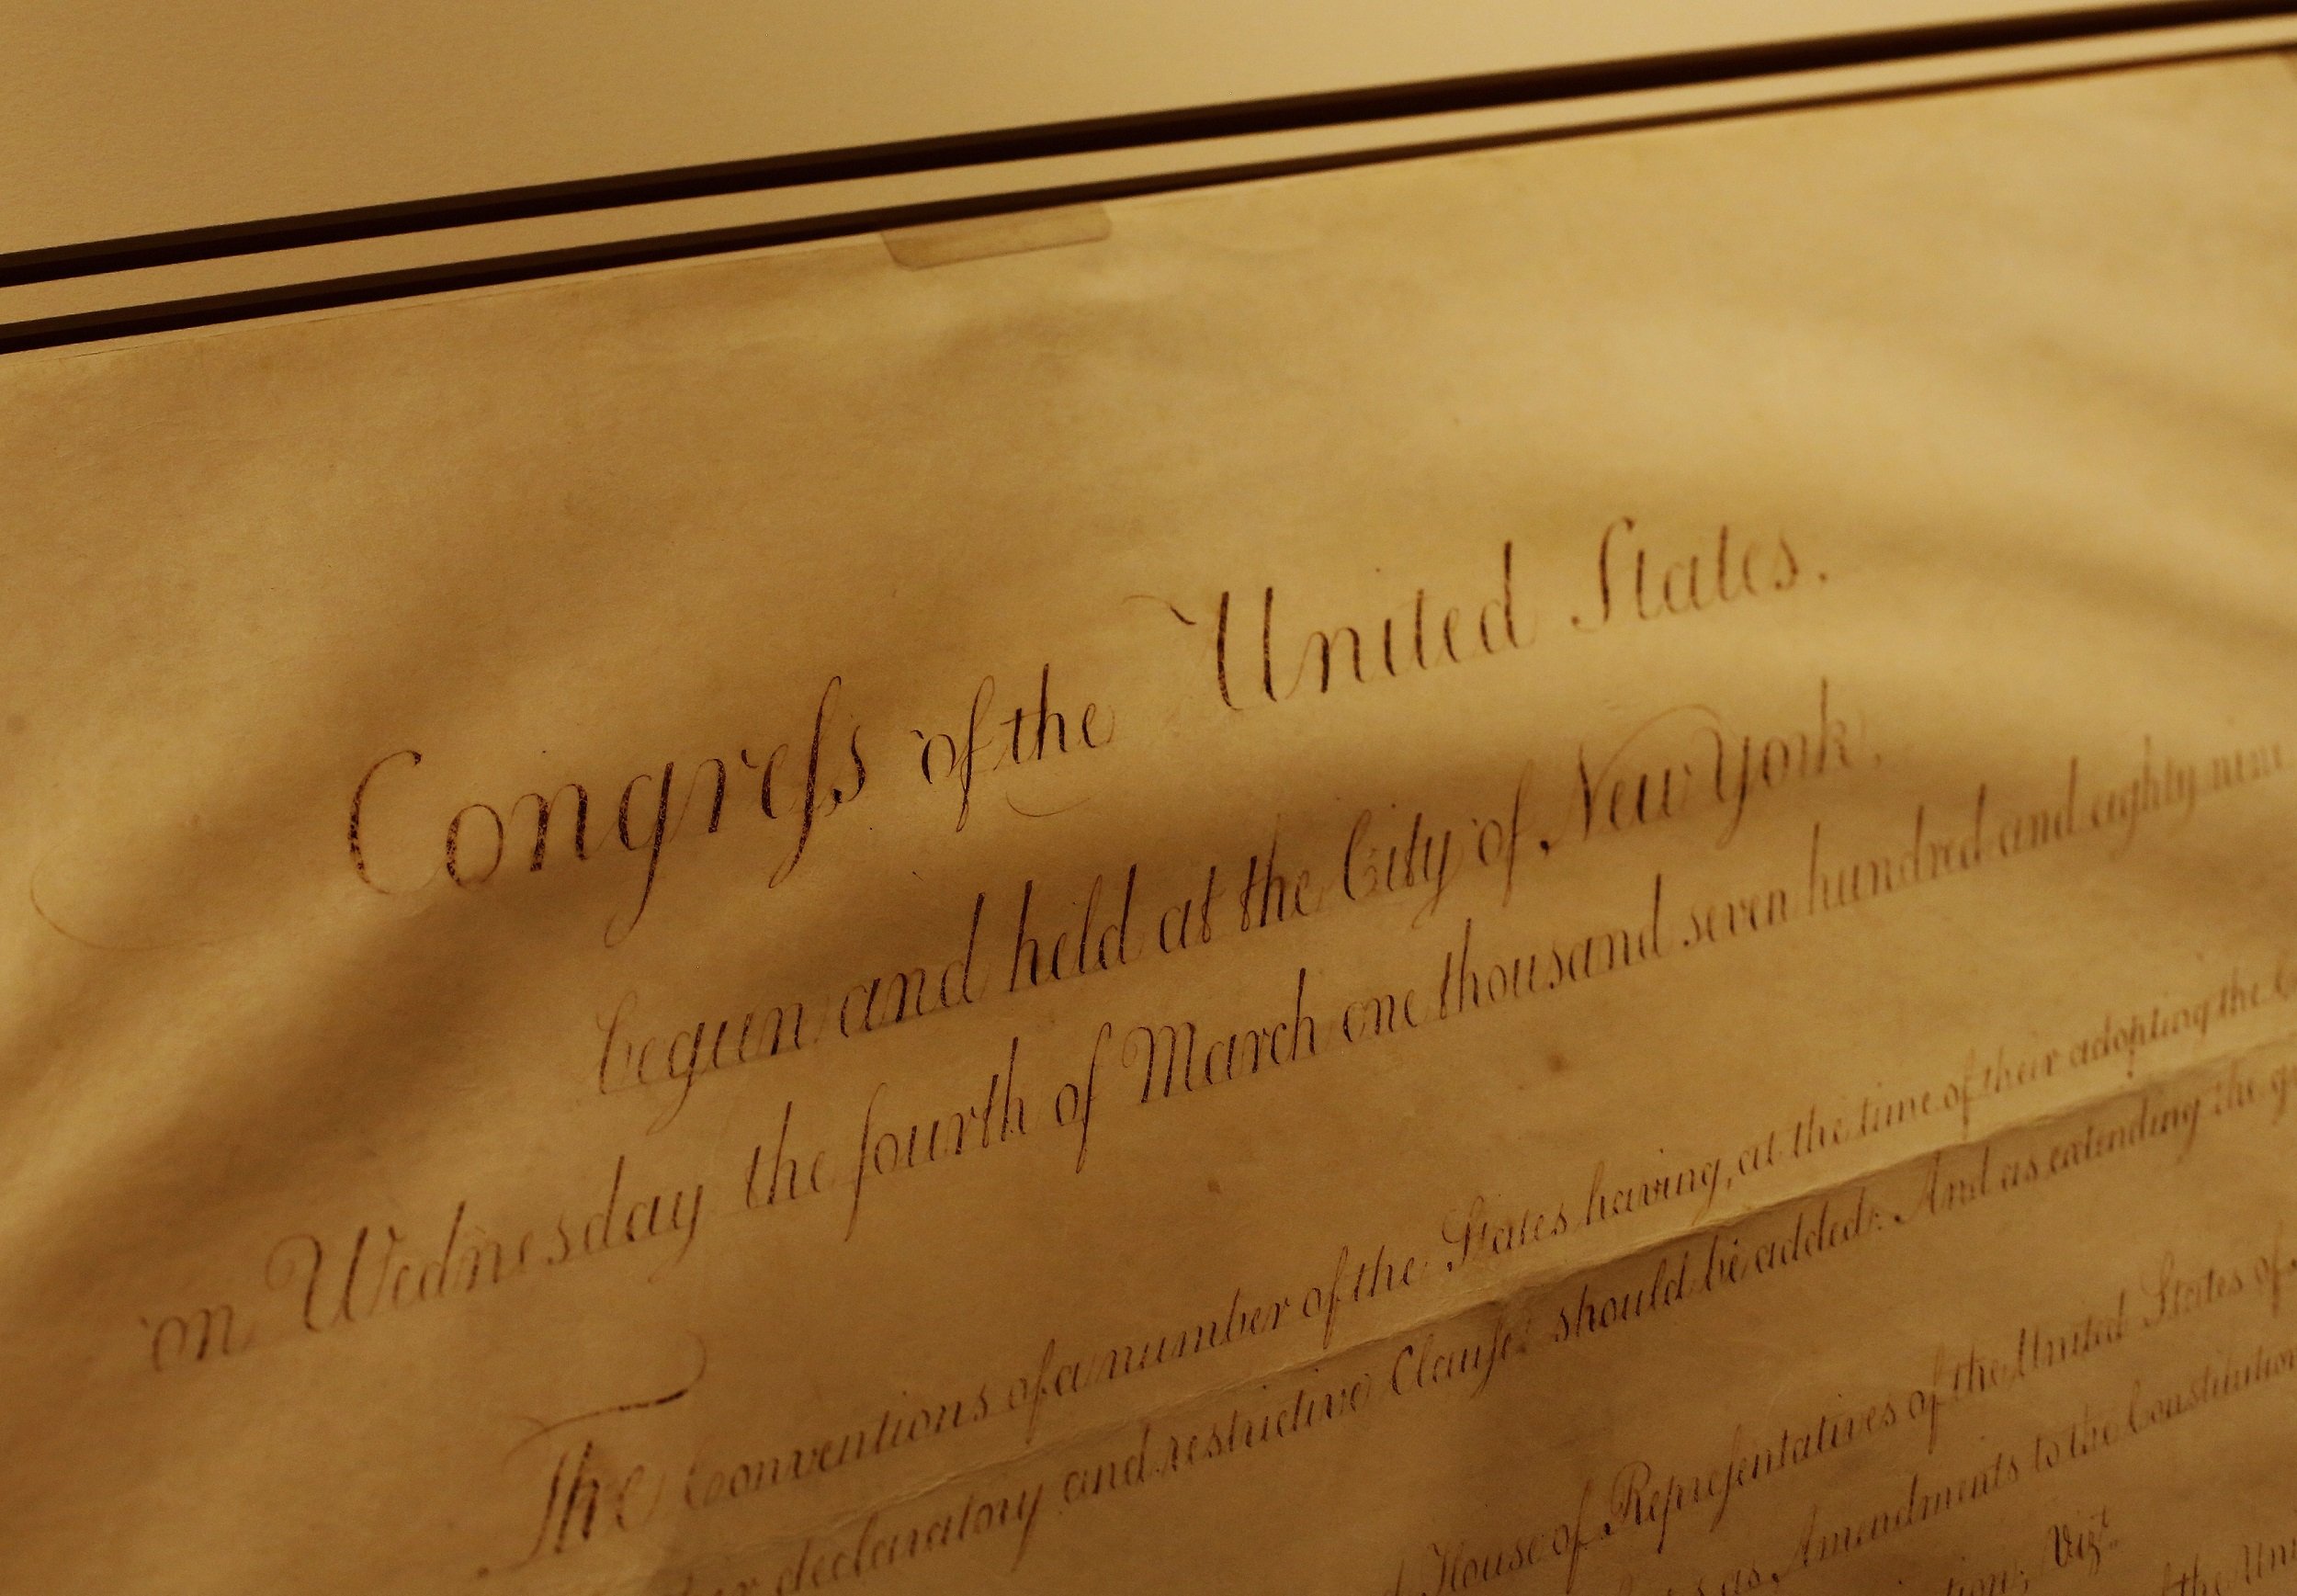 Congreſs of the United States.
begun and held at the City of New York,
on Wednesday the fourth of March one thousand seven hundred and eighty nine
The Conventions of a number of the States having, at the time of their adopting the
declaratory and restrictive Clauses should be added: And as extending the
House of Repreſentatives of the United States of
as Amendments to the Constitution
Viz.
of the